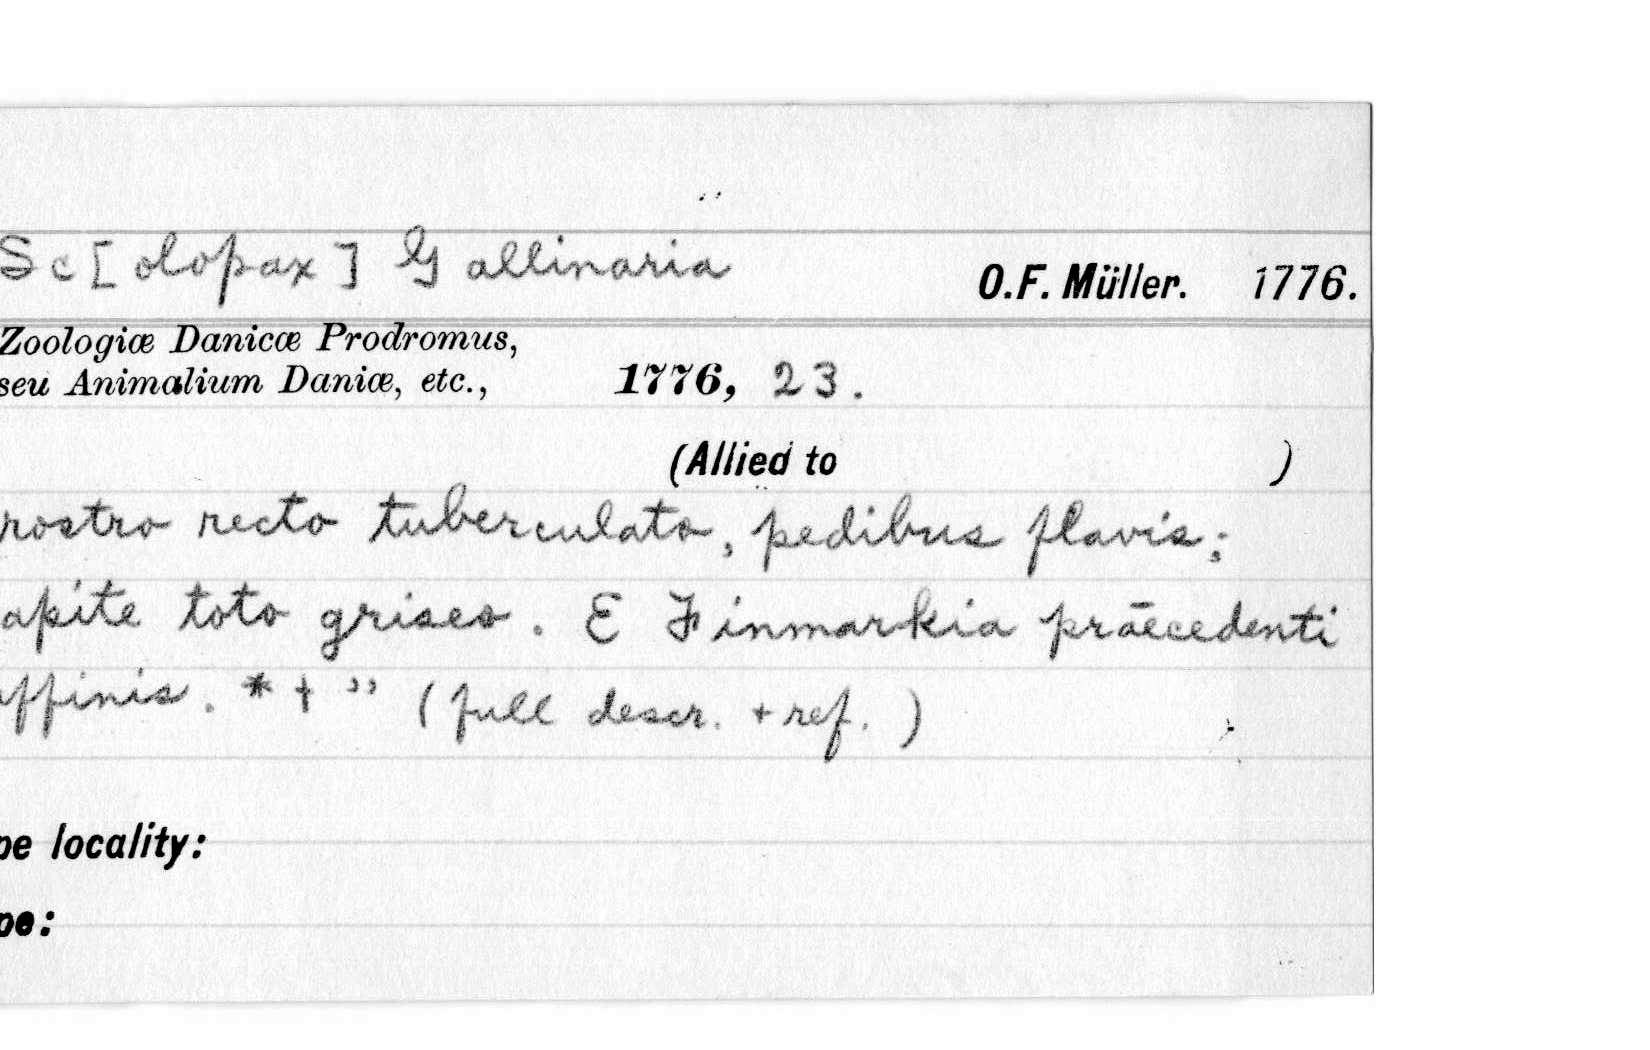 Sc[olopax] Gallinaria
O.F. Müller. 1776.
Zoologiæ Danicæ Prodromus,
seu Animalium Daniæ, etc., 1776, 23.
(Allied to )
rostro recto tuberculato, pedibus flavis;
apite toto griseo. E Finmarkia præcedenti
affinis. * † ” (full descr. + ref. )
pe locality:
pe: